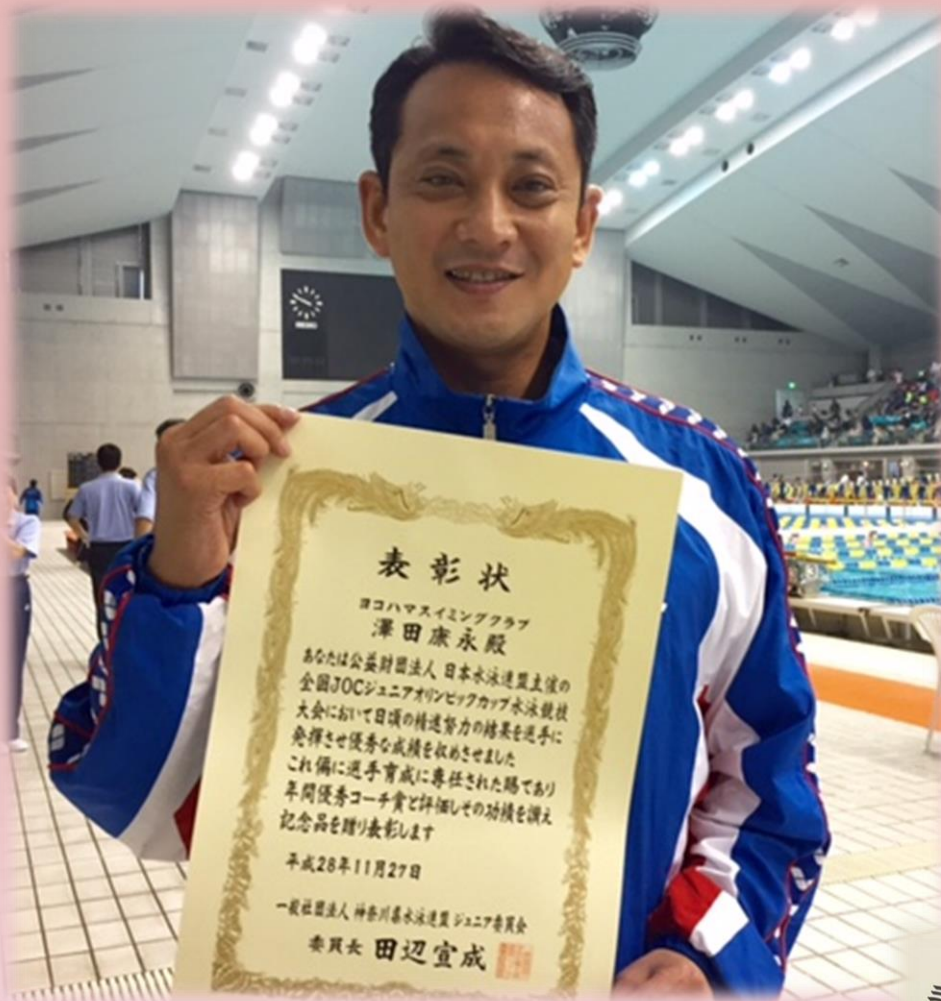 表彰状
ヨコハマスイミングクラブ
澤田康永殿
あなたは公益財団法人 日本水泳連盟主催の
全国JOCジュニアオリンピックカップ水泳競技
大会において日頃の精進努力の結果を選手に
発揮させ優秀な成績を収めさせました
これ偏に選手育成に専任された賜であり
年間優秀コーチ賞と評価しその功績を讃え
記念品を贈り表彰します
平成28年11月27日
一般社団法人 神奈川県水泳連盟 ジュニア委員会
委員長 田辺宣成
SEIKO